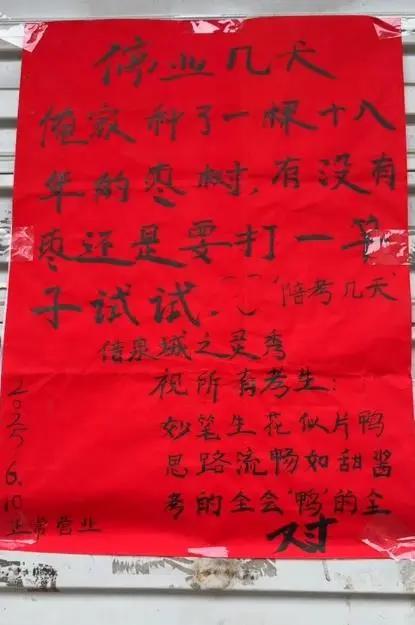 停业几天
俺家种了一棵十八
年的枣树,有没有
枣还是要打一竿
子试试. 陪考几天
借泉城之灵秀
祝所有考生:
妙笔生花似片鸭
思路流畅如甜酱
考的全会"鸭"的全
对
2025 6.10
正常营业